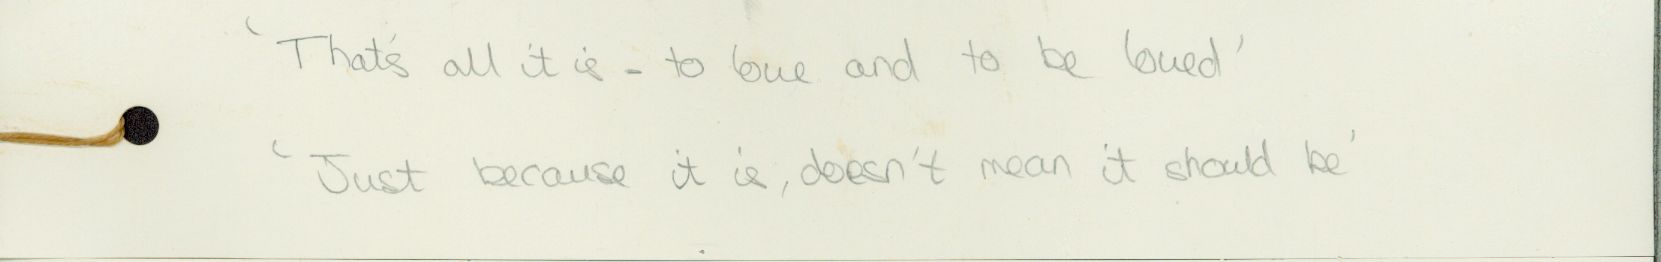 'That's all it is - to love and to be loved'
'Just because it is, doesn't mean it should be'